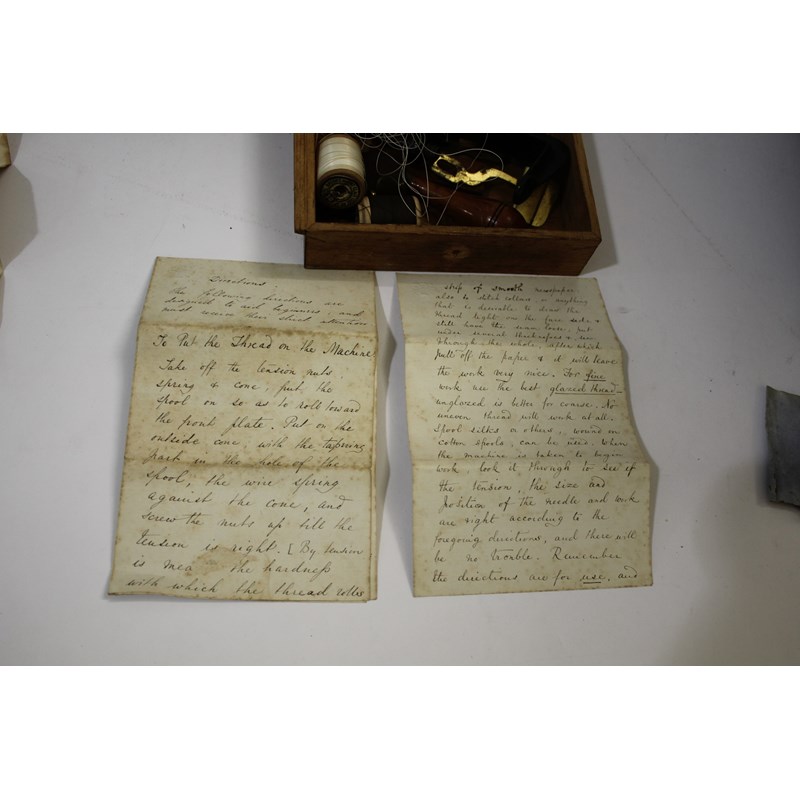 Directions
The following directions are
designed to aid beginners and
must receive their strict attention
To Put the Thread on the Machine
Take off the tension nuts
spring & cone, put the
spool on so as to roll toward
the front plate. Put on the
outside cone, with the tapering
part in the hole of the
spool, the wire spring
against the cone, and
screw the nuts up till the
tension is right. [By tension
is mea the hardness
with which the thread rolls
strip of smooth newspaper
also to stitch collars, or anything
that is desirable to draw the
thread tight on the face side &
still have the seam loose, put
under several thicknesses & sew
through the whole, after which
pull off the paper & it will leave
the work very nice. For fine
work use the best glazed thread
unglazed is better for coarse. No
uneven thread will work at all.
Spool silks or others, wound on
cotton spools, can be used. When
the machine is taken to begin
work, look it through to see if
the tension, the size and
position of the needle and work
are right according to the
foregoing directions, and there will
be no trouble. Remember
the directions are for use, and